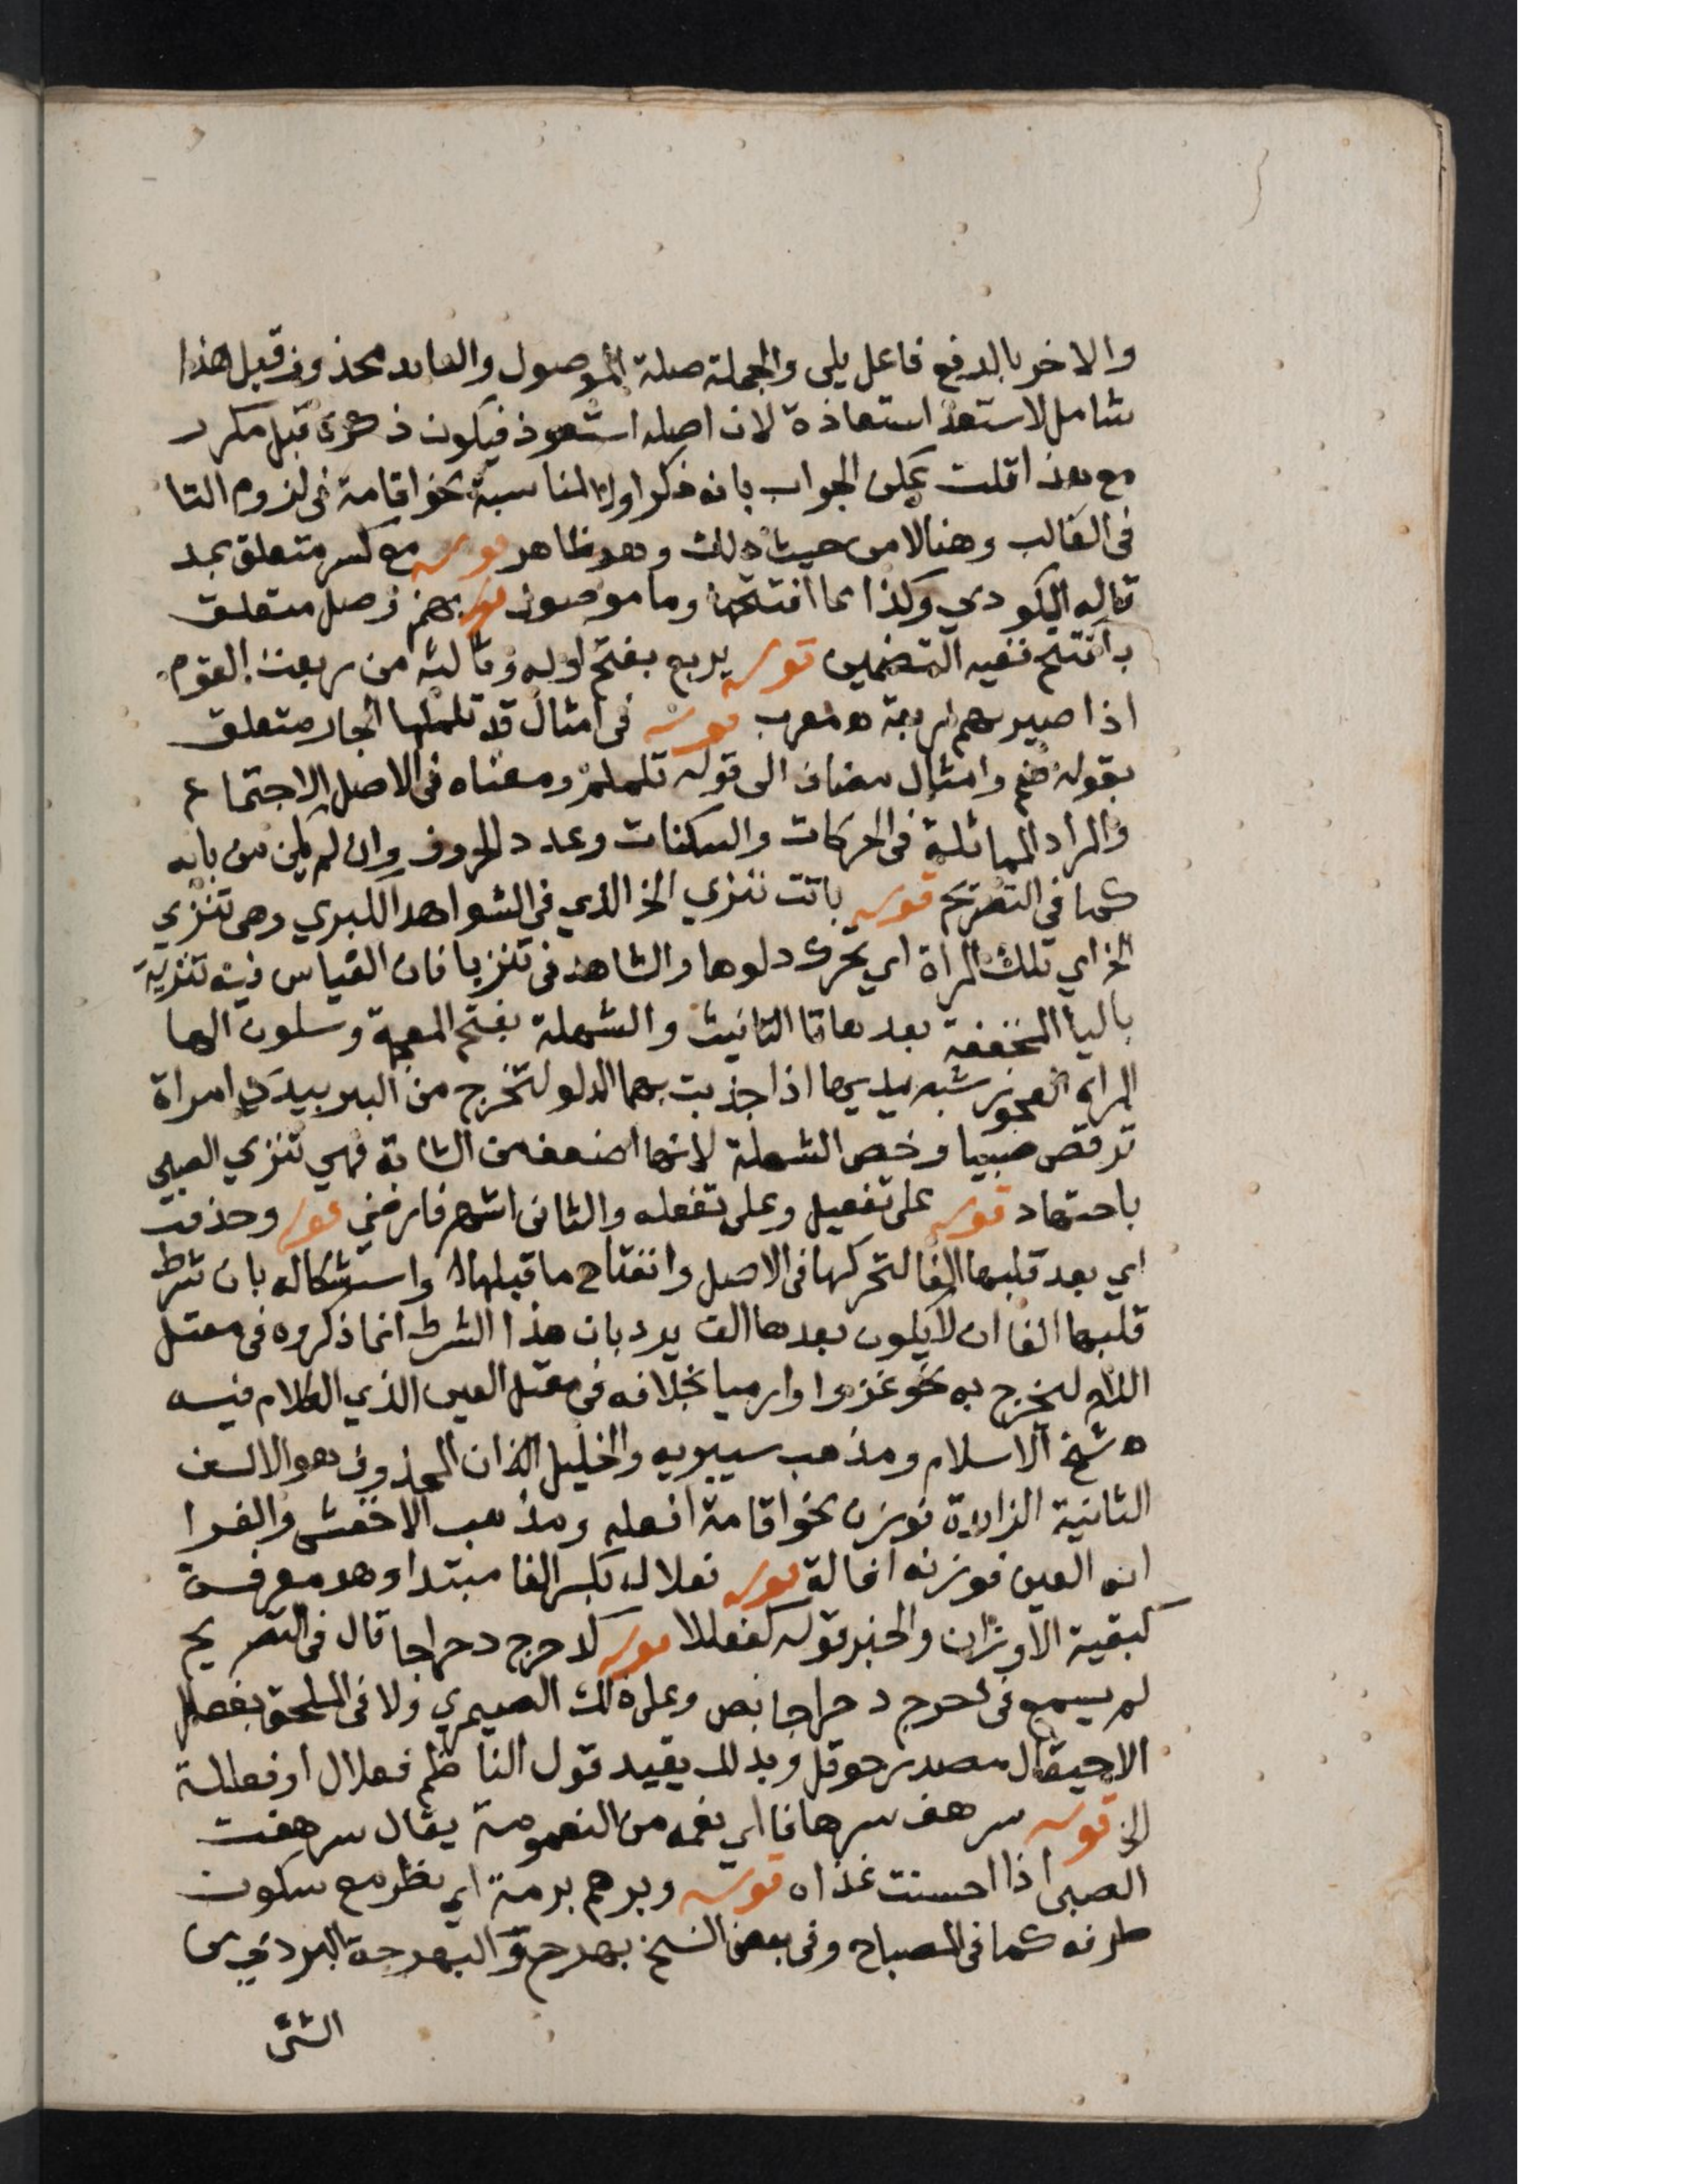 والاخر بالرفع فاعل يلى والجملة صلة الموصول والعايد محذوف قيل هذا
شامل لاستعذ استعاذة لان اصله استعوذ فيكون ذكره قبل مكرر
مع هذا قلت يمكن الجواب بانه ذكر اولا لمناسبة نحو اقامة فى لزوم التا
فى الغالب وهنا لا من حيث ذلك وهو ظاهر قوله مع كسر متعلق بمد
قاله المكودي وكذا مما افتتحا وما موصول قوله بهمز وصل متعلق
بافتتح ففيه التضمين قوله يربع بفتح اوله وثالثه من ربعت القوم
اذا صيرهم اربعة ه معرب قوله فى امثال قد تلملما الجار متعلق
بقوله ضم وامثال مضاف الى قوله تلملم ومعناه فى الاصل الاجتماع
والمراد المماثلة فى الحركات والسكنات وعدد الحروف وان لم يكن من بابه
كما فى التصريح قوله باتت تنزي الخ الذي فى الشواهد الكبري وهى تنزي
الخ اي تلك المراة اي تحرك دلوها والشاهد فى تنزيا فان القياس فيه تنزية
باليا المخففة بعدها تا التانيث والشهلة بفتح المعجمة وسكون الها
المراة العجوز شبه يديها اذا جذبت بهما الدلو لتخرج من البير بيدي امراة
ترقص صبيا وخص الشهلة لانها اضعف من الشابة فهي تنزي الصبى
باجتهاد قوله على تفعيل وعلى تفعله والثانى اشهر فارضي قوله وحذفت
اي بعد قلبها الفا لتحركها فى الاصل وانفتاح ما قبلها واستشكاله بان شرط
قلبها الفا ان لا يكون بعدها الف يرد بان هذا الشرط انما ذكروه فى معتل
اللام ليخرج به نحو غزوا وارميا بخلافه فى معتل العين الذي الكلام فيه
ه شيخ الاسلام ومذهب سيبويه والخليل ان المحذوف هو الالف
الثانية الزايدة فوزن نحو اقامة افعلة ومذهب الاخفش والفرا
انه العين فوزنه افالة قوله فعلال بكسر الفا مبتدا وهو معرفة
كبقية الاوزان والخبر قوله لفعللا قوله كدحرج دحراجا قال فى التصريح
لم يسمع فى دحرج دحراجا نص على ذلك الصيمري ولا فى الملحق بفعلل
الا حيقال مصدر حوقل وبذلك يقيد قول الناظم فعلال او فعللة
الخ قوله سرهف سرهافا اي نعمه من النعومة يقال سرهفت
الصبى اذا احسنت غذاه قوله وبرهم برهمة اي نظر مع سكون
طرفه كما فى المصباح وفى بعض النسخ بهرج والبهرجة الردي من
الشى